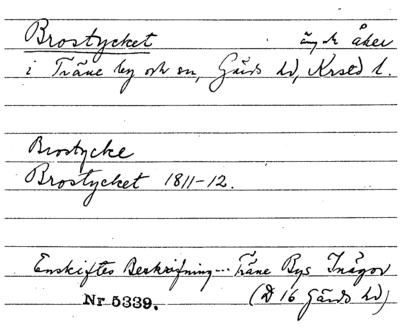 Brostycket äng o. åker
i Träne by och sn, Gärds hd, Krstd l.
Brostycke
Brostycket 1811-12.
Enskiftes Beskrifning... Träne Bys Inägor
Nr 5339. (D 16 Gärds hd)